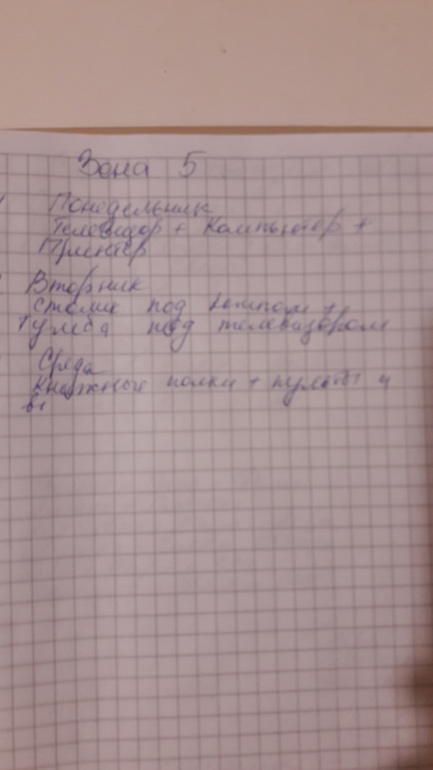 Зона 5
Понедельник
Телевизор + Компьютер +
Принтер
Вторник
столик под компом +
тумба под телевизором
Среда
Книжные полки + пульты и